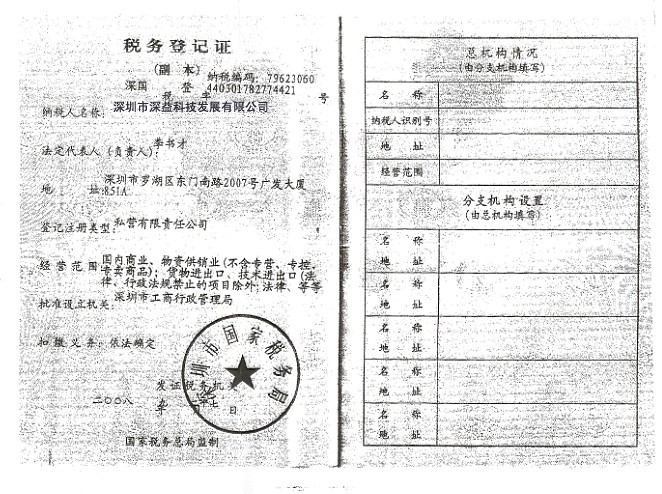 税务登记证
(副 本)
纳税编码: 79623060
深国 登 440301782774421 号
纳税人名称: 深圳市深益科技发展有限公司
法定代表人(负责人): 李书才
地 址: 深圳市罗湖区东门南路2007号广发大厦
851A
登记注册类型: 私营有限责任公司
经营范围: 国内商业、物资供销业(不含专营、专控、
专卖商品); 货物进出口、技术进出口(法
律、行政法规禁止的项目除外; 法律、等等
批准设立机关: 深圳市工商行政管理局
扣缴义务: 依法确定
深圳市国家税务局
发证税务机
二〇〇八 年 月 日
国家税务总局监制
总机构情况
(由分支机构填写)
名 称
纳税人识别号
地 址
经营范围
分支机构设置
(由总机构填写)
名 称
地 址
名 称
地 址
名 称
地 址
名 称
地 址
名 称
地 址